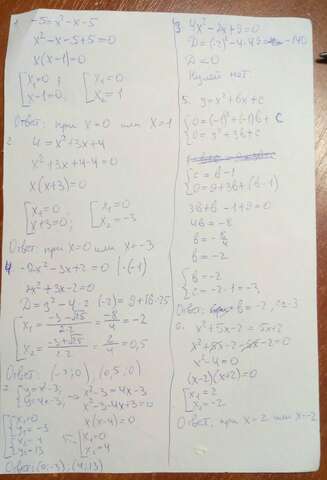 1. -5=x²-x-5
x²-x-5+5=0
x(x-1)=0
[x₁=0; [x₁=0
[x-1=0; [x₂=1
Ответ: при x=0 или x=1
2. 4=x²+3x+4
x²+3x+4-4=0
x(x+3)=0
[x₁=0 [x₁=0
[x+3=0; [x₂=-3
Ответ: при x=0 или x=-3
4. -2x²-3x+2=0 |·(-1)
2x²+3x-2=0
D=3²-4·2·(-2)=9+16=25
[x₁=(-3-√25)/(2·2)=-8/4=-2
[x₂=(-3+√25)/(2·2)=2/4=0,5
Ответ: (-2;0), (0,5;0)
7. {y=x²-3; → x²-3=4x-3;
{y=4x-3; x²-3-4x+3=0
x(x-4)=0
[x₁=0
[x₂=4
{x₁=0
{y₁=-3
{x₂=4
{y₂=13
Ответ: (0;-3), (4;13)
3. 4x²-2x+9=0
D=(-2)²-4·4·9=-140
D<0
Нулей нет.
5. y=x²+bx+c
{0=(-1)²+(-1)b+c
{0=3²+3b+c
{c=b-1
{0=9+3b+(b-1)
3b+b-1+9=0
4b=-8
b=-8/4
b=-2
{b=-2
{c=-2-1=-3
Ответ: b=-2, c=-3
6. x²+5x-2=5x+2
x²+5x-2-5x-2=0
x²-4=0
(x-2)(x+2)=0
[x₁=2
[x₂=-2
Ответ: при x=2 или x=-2